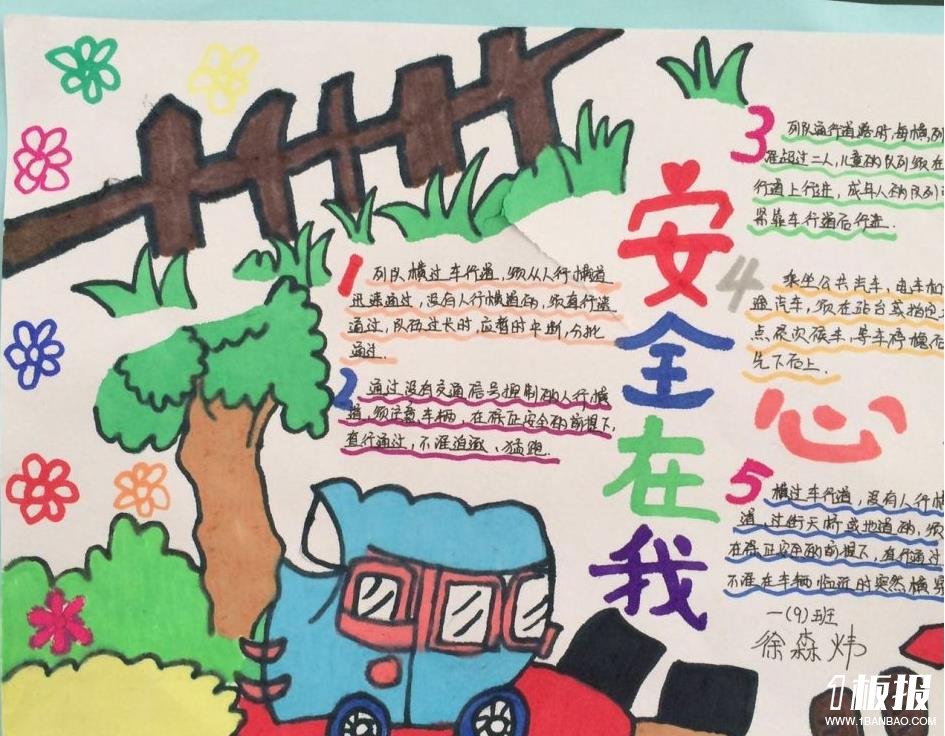 安全在我心
1 列队横过车行道,须从人行横道
迅速通过,没有人行横道的,须直行
通过,队伍过长时,应暂时中断,分批
通过.
2 通过没有交通信号控制的人行横
道,须注意车辆,在保证安全的前提下,
直行通过,不准追逐、猛跑.
3 列队通行道路时,每横列
准超过二人,儿童的队列须在
行道上行进,成年人的队列
紧靠车行道右行进.
4 乘坐公共汽车、电车和
通汽车,须在站台或指定
点依次候车,等车停稳后
先下后上.
5 横过车行道,没有人行横
道,过街天桥或地道的,须
在保证安全的前提下,直行通过
不准在车辆临近时突然横穿
一(9)班
徐森炜
1板报
WWW.1BANBAO.COM